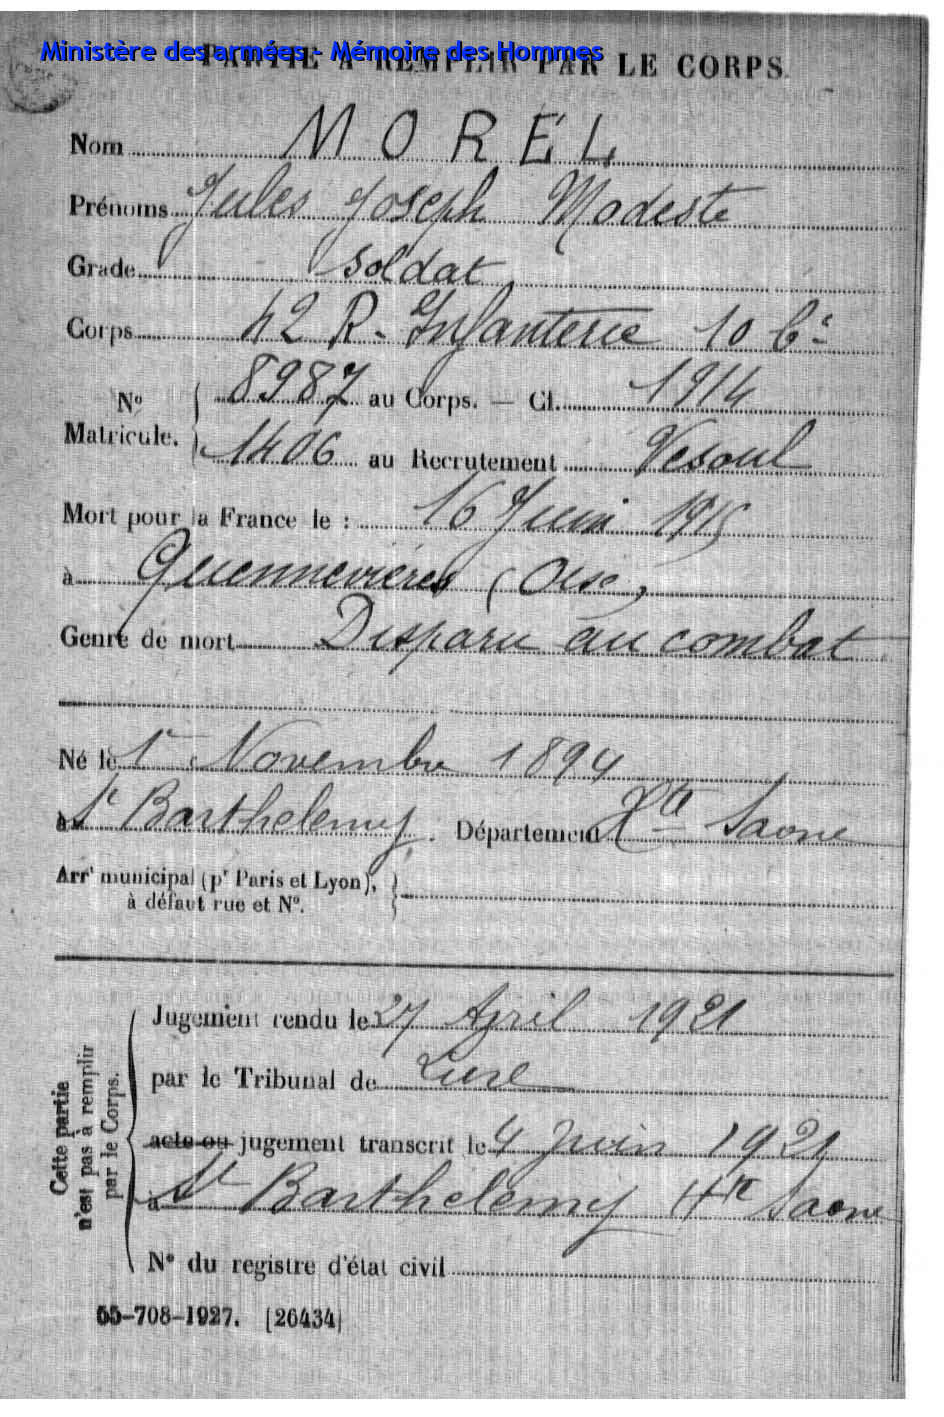 Ministère des armées - Mémoire des Hommes
PARTIE A REMPLIR PAR LE CORPS.
Nom MOREL
Prénoms Jules Joseph Modeste
Grade soldat
Corps 42 R. Infanterie 10 Cie
No Matricule. 8987 au Corps. — Cl. 1914
1406 au Recrutement Vesoul
Mort pour la France le : 16 Juin 1915
à Quennevières (Oise)
Genre de mort Disparu au combat
Né le 1er Novembre 1894
à St Barthelemy. Département Hte Saone
Arrt municipal (pr Paris et Lyon),
à défaut rue et No.
Cette partie n'est pas à remplir par le Corps.
Jugement rendu le 27 Avril 1921
par le Tribunal de Lure
acte ou jugement transcrit le 4 Juin 1921
à St Barthelemy Hte Saone
No du registre d'état civil
55-708-1927. [26434]